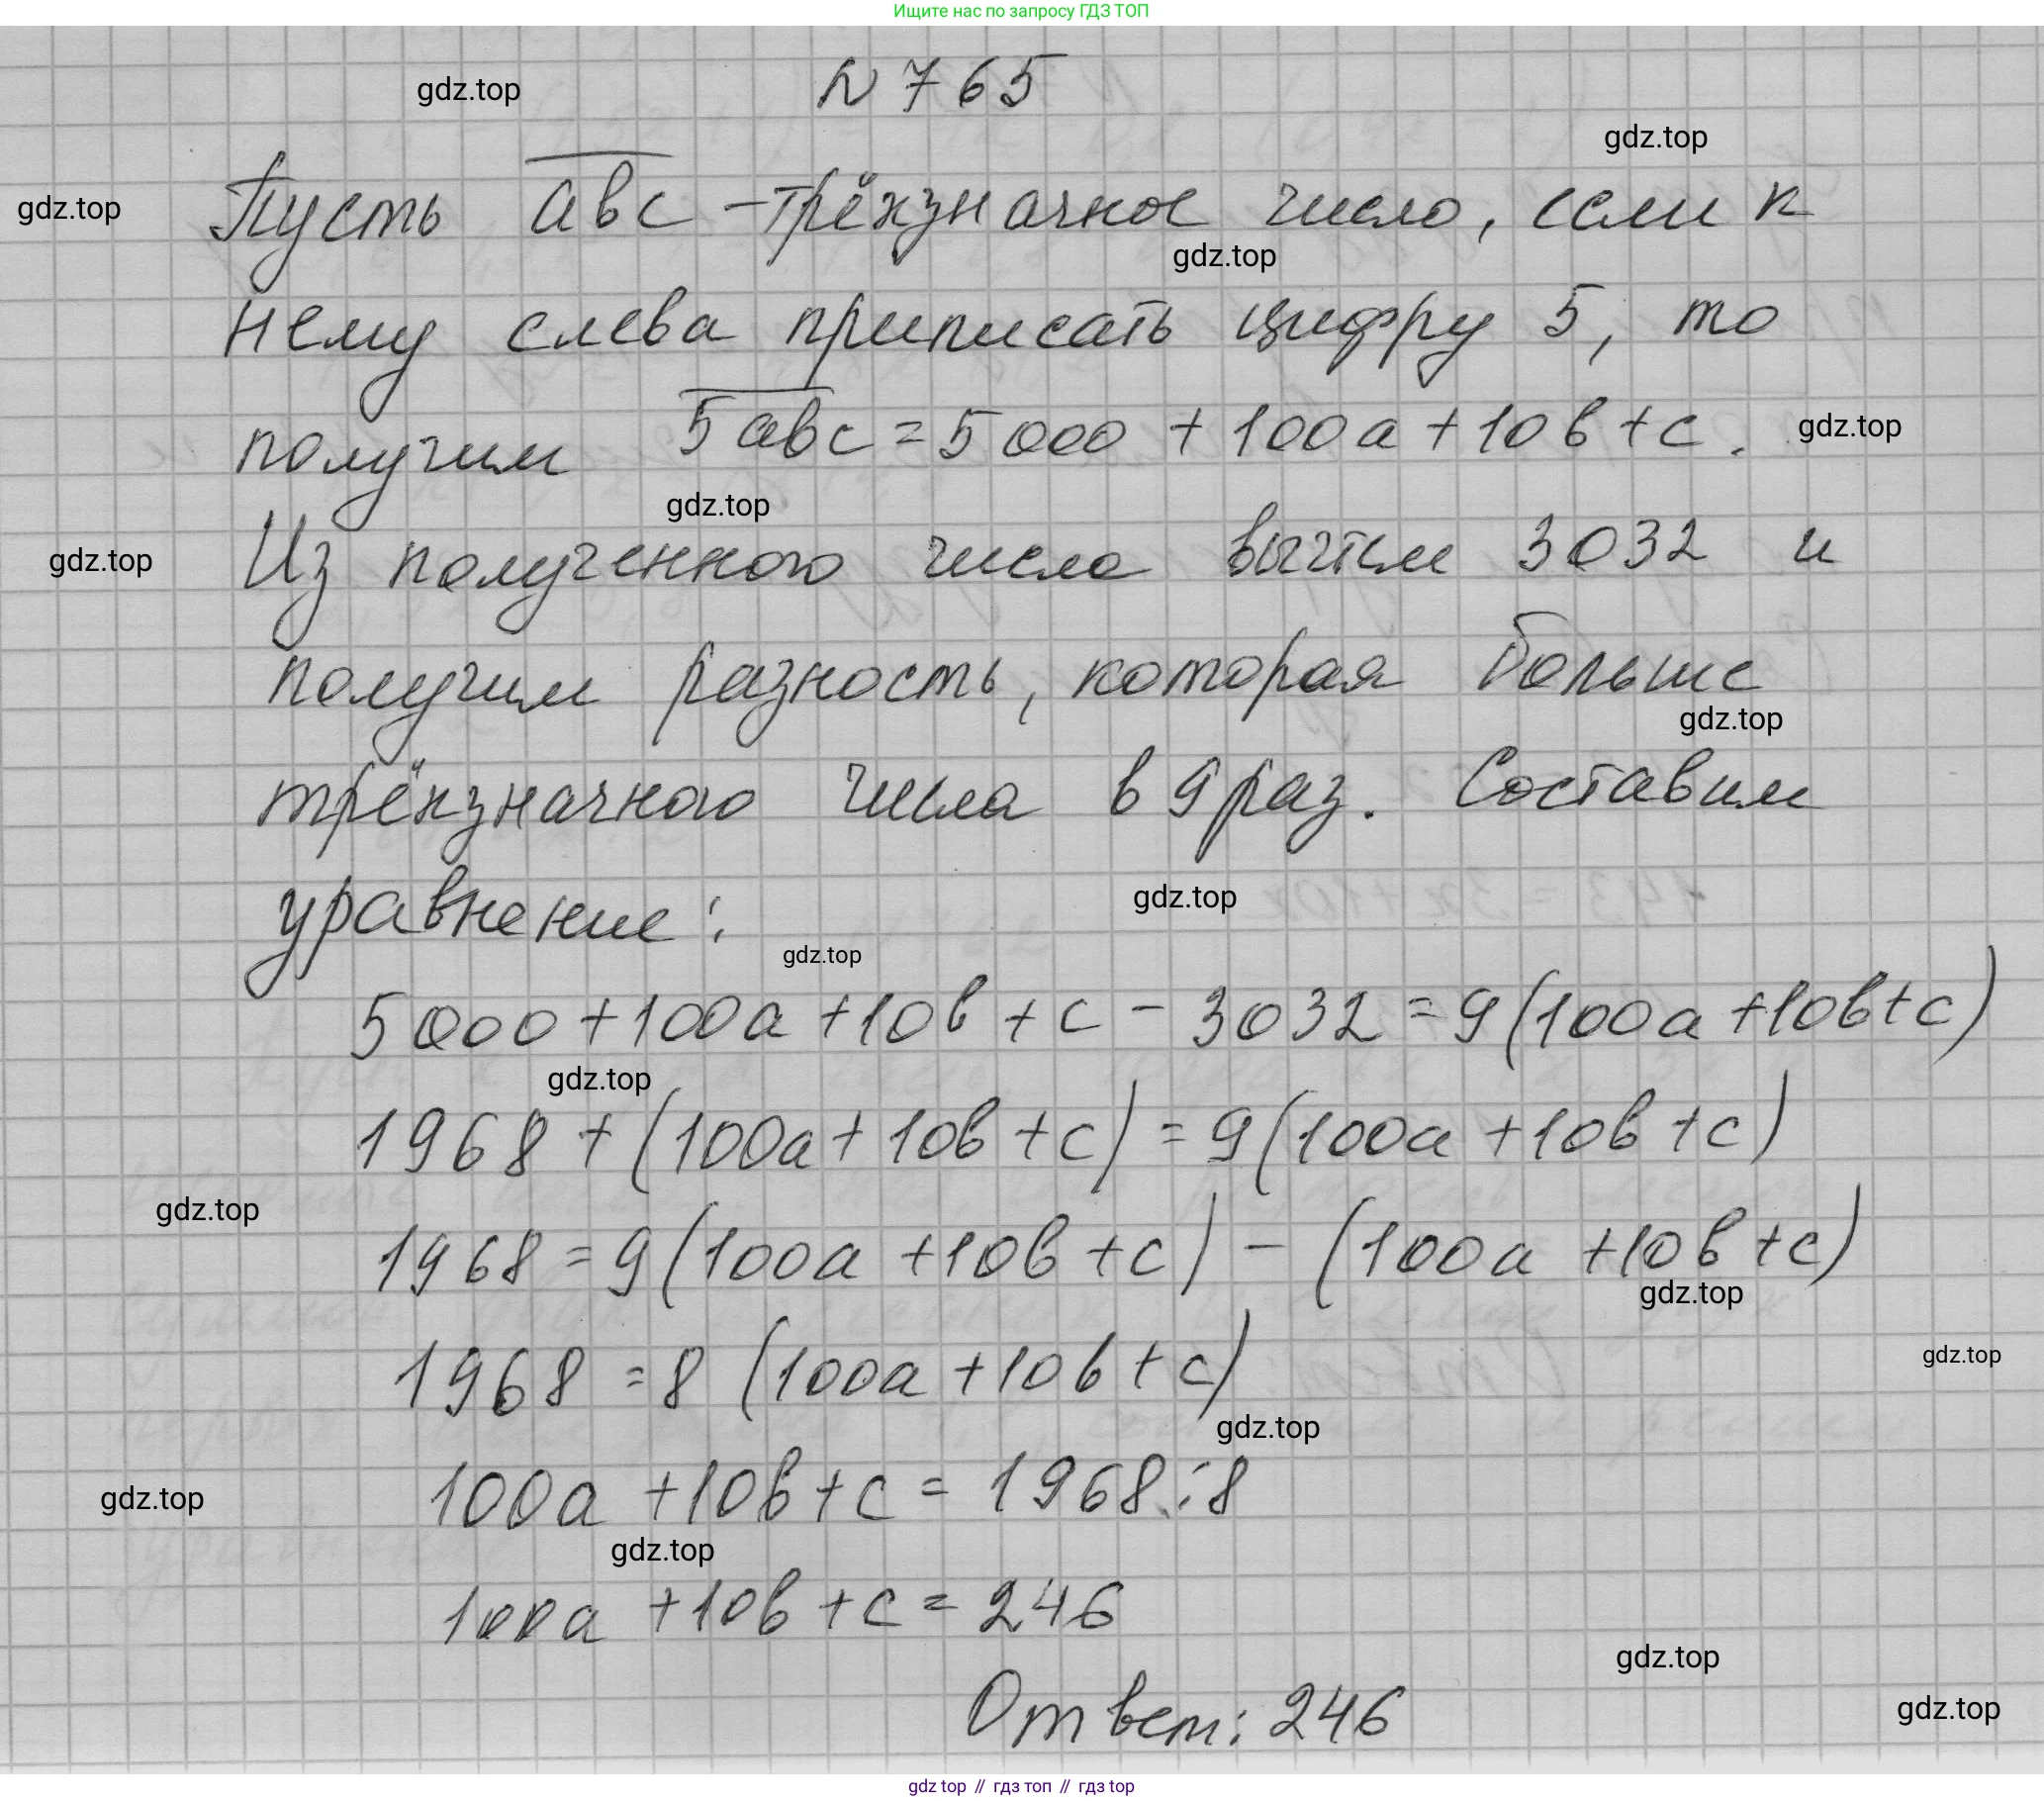 Ищите нас по запросу ГДЗ ТОП
N 765
gdz.top
gdz.top
gdz.top
Пусть abc - трёхзначное число, если к
gdz.top
нему слева приписать цифру 5, то
получим 5abc = 5000 + 100a + 10b + c.
gdz.top
gdz.top
Из полученного числа вычтем 3032 и
gdz.top
получим разность, которая больше
gdz.top
трёхзначного числа в 9 раз. Составим
уравнение:
gdz.top
gdz.top
5000 + 100a + 10b + c - 3032 = 9(100a + 10b + c)
gdz.top
1968 + (100a + 10b + c) = 9(100a + 10b + c)
gdz.top
1968 = 9(100a + 10b + c) - (100a + 10b + c)
gdz.top
gdz.top
1968 = 8 (100a + 10b + c)
gdz.top
100a + 10b + c = 1968 : 8
gdz.top
gdz.top
100a + 10b + c = 246
gdz.top
Ответ: 246
gdz.top
gdz top // гдз топ // гдз top